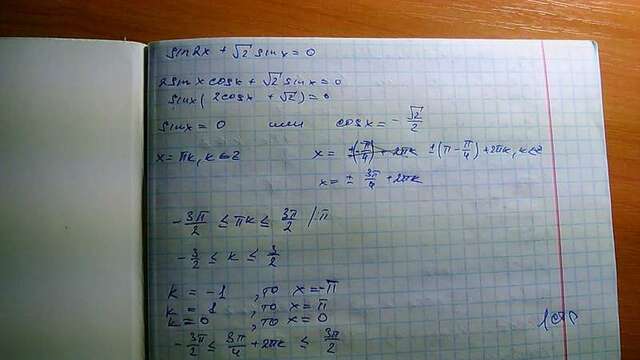 sin2x + √2 sinx = 0
2sinx cosx + √2 sinx = 0
sinx(2cosx + √2) = 0
sinx = 0 или cosx = -√2/2
x = πk, k∈Z x = ±(π - π/4) + 2πk, k∈Z
x = ± 3π/4 + 2πk
-3π/2 ≤ πk ≤ 3π/2 /π
-3/2 ≤ k ≤ 3/2
k = -1, то x = -π
k = 1, то x = π
k = 0, то x = 0
-3π/2 ≤ 3π/4 + 2πk ≤ 3π/2
1 стр